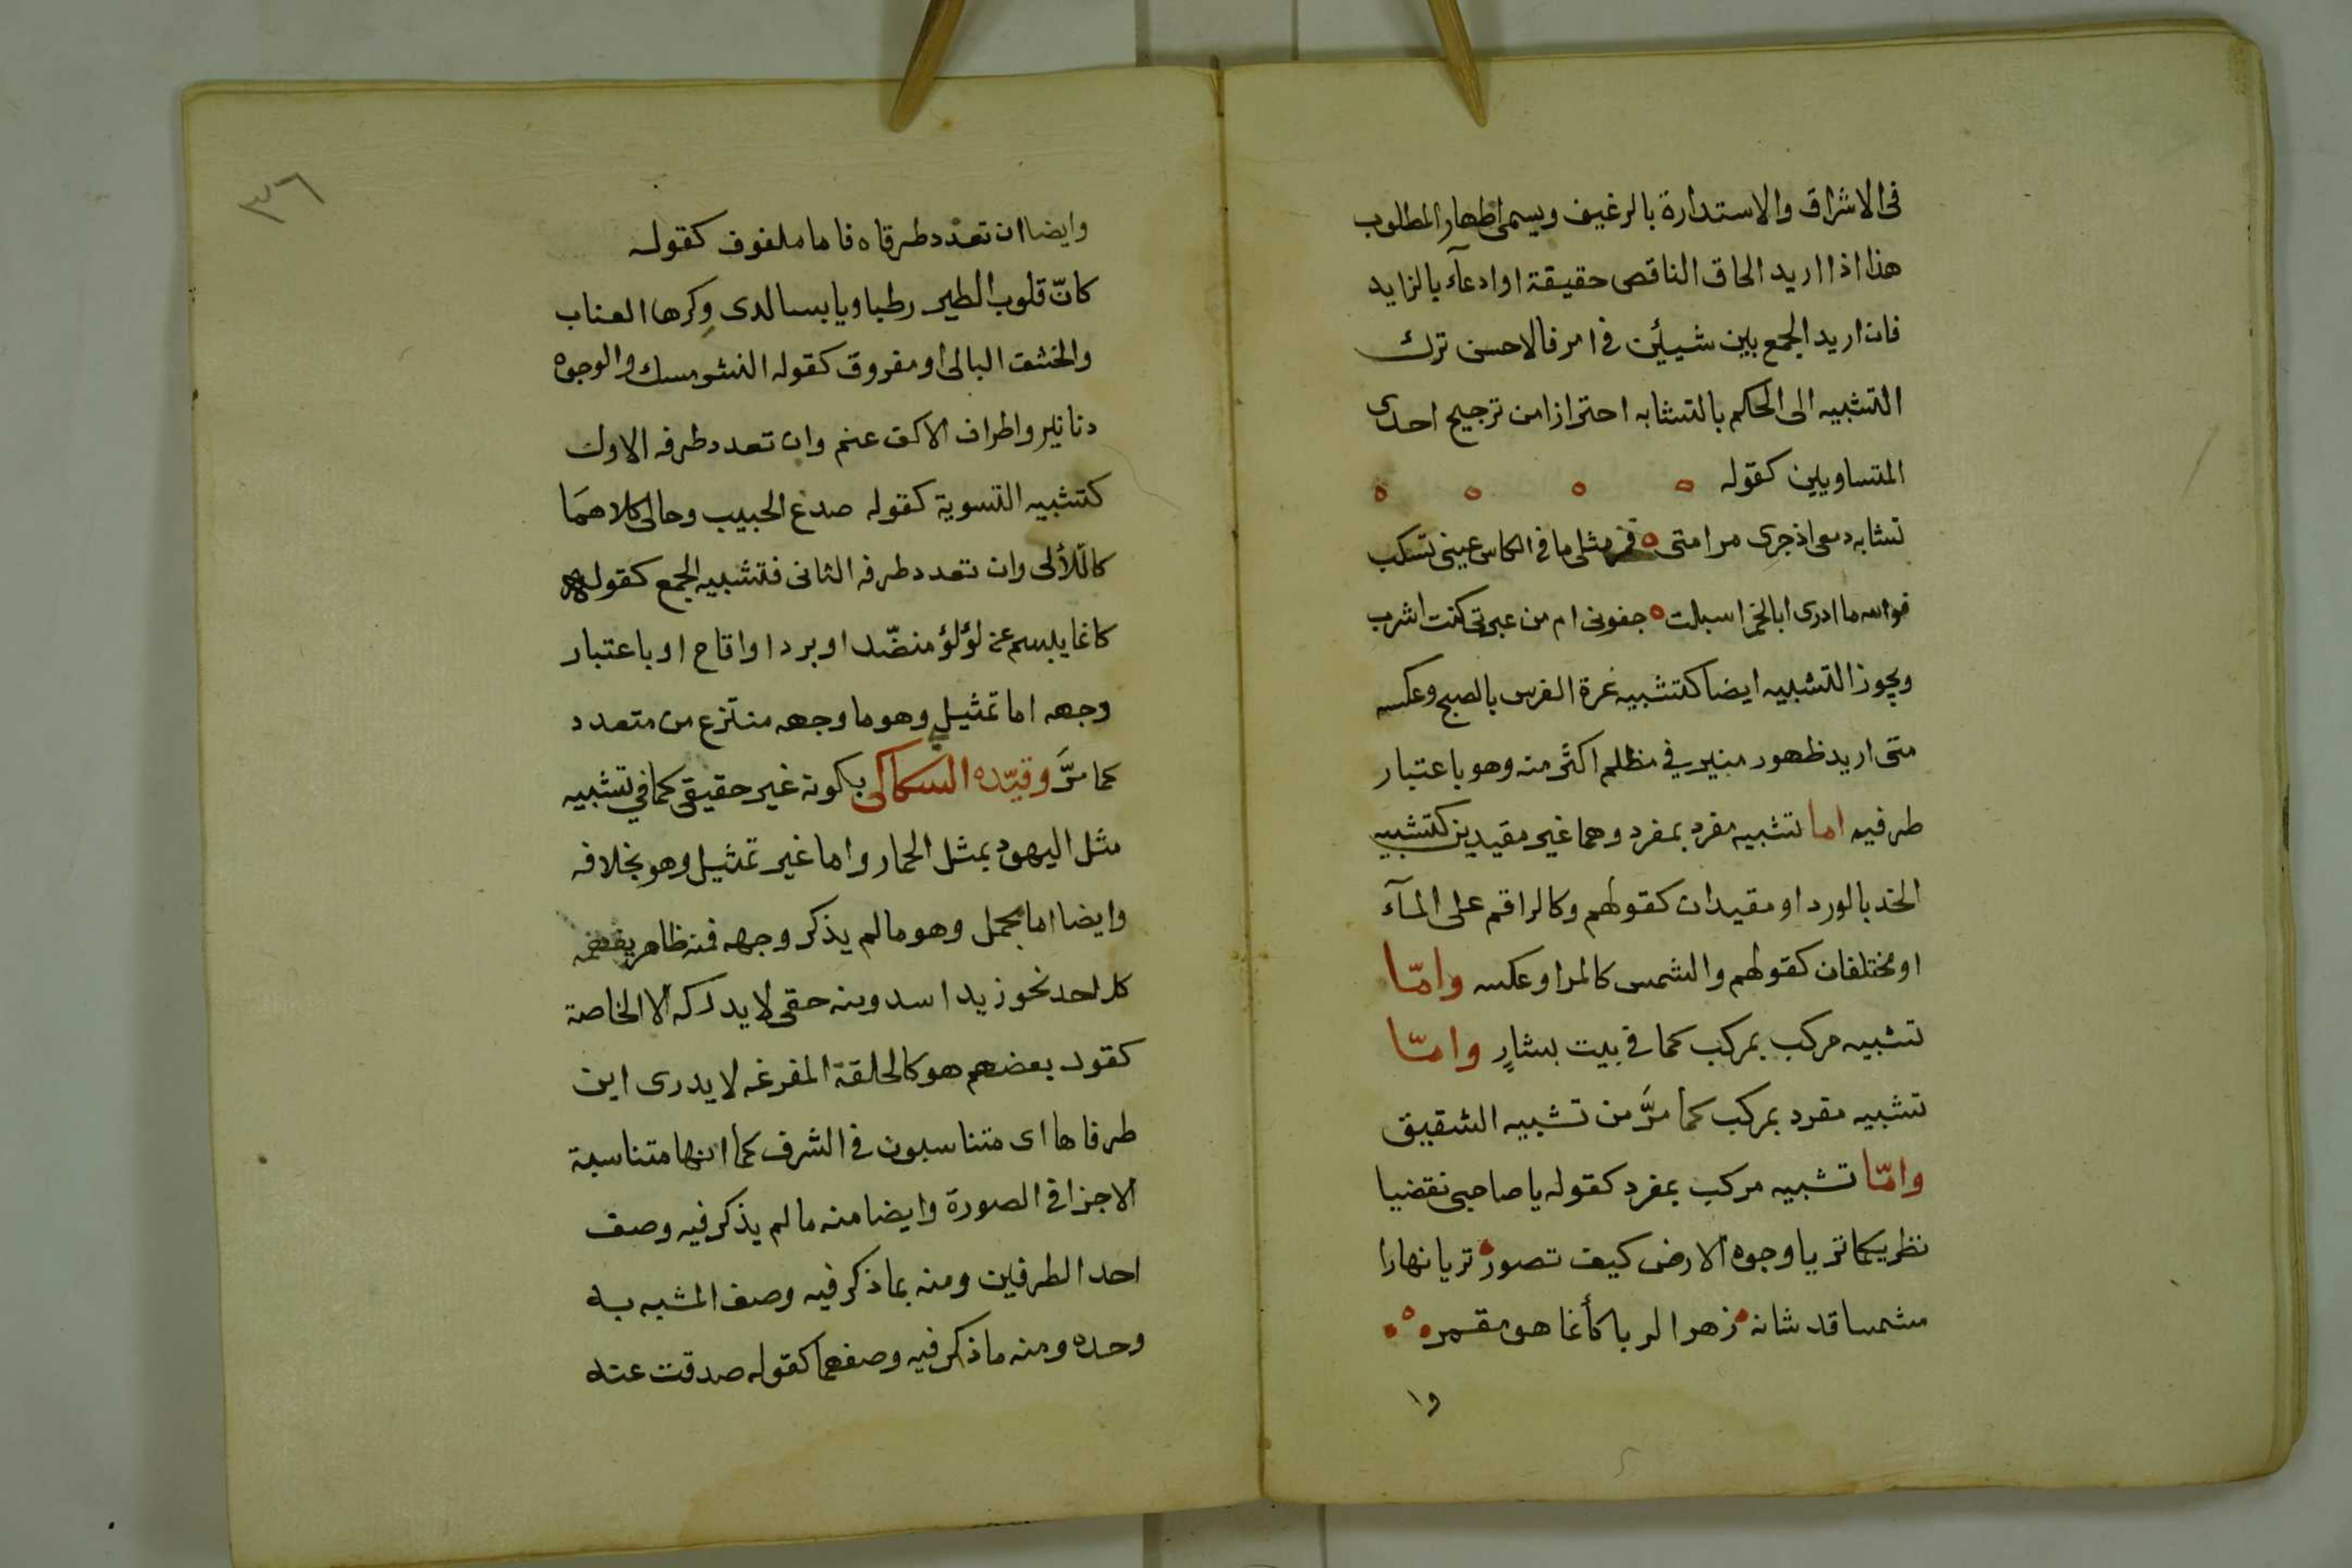 فى الاشراق والاستدارة بالرغيف ويسمى اظهار المطلوب
هذا اذا اريد الحاق الناقص حقيقة او ادعآء بالزايد
فان اريد الجمع بين شيأين فى امر فالاحسن ترك
التشبيه الى الحكم بالتشابه احترازا من ترجيح احدى
المتساويين كقوله
تشابه دمعى اذ جرى مدامتى فمن مثل ما فى الكاس عينى تسكب
فوالله ما ادرى ابالخمر اسبلت جفونى ام من عبرتى كنت اشرب
ويجوز التشبيه ايضا كتشبيه غرة الفرس بالصبح وعكسه
متى اريد ظهور منير في مظلم اكثر منه وهو باعتبار
طرفيه اما تشبيه مفرد بمفرد وهما غير مقيدين كتشبيه
الخد بالورد او مقيدان كقولهم وكالراقم على المآء
او مختلفان كقولهم والشمس كالمرا وعكسه وامّا
تشبيه مركب بمركب كما فى بيت بشارٍ وامّا
تشبيه مفرد بمركب كما مرَّ من تشبيه الشقيق
وامّا تشبيه مركب بمفرد كقوله يا صاحبى تقضيا
نظريكما تريا وجوه الارض كيف تصور تريا نهارا
مشمسا قد شانه زهر الربا كأنما هو مقمر
وا
٣٦
وايضا ان تعدد طرفاه فاما ملفوف كقوله
كانّ قلوب الطير رطبا ويابسا لدى وكرها العناب
والخشف البالى او مفروق كقوله النشر مسك والوجوه
دنانير واطراف الاكف عنم وان تعدد طرفه الاول
كتشبيه التسوية كقوله صدغ الحبيب وحالى كلاهمَا
كاللّألى وان تعدد طرفه الثانى فتشبيه الجمع كقوله
كانما يبسم عن لؤلؤ منضّد او برد او اقاح او باعتبار
وجهه اما تمثيل وهو ما وجهه منتزع من متعدد
كما مرَّ وقيّده السكاكى بكونه غير حقيقى كما في تشبيه
مثل اليهود بمثل الحمار واما غير تمثيل وهو بخلافه
وايضا اما مجمل وهو مالم يذكر وجهه فمنه ظاهر يفهمه
كل احد نحو زيد اسد ومنه خفى لا يدركه الا الخاصة
كقول بعضهم هو كالحلقة المفرغه لا يدرى اين
طرفاها اى متناسبون فى الشرف كما انها متناسبة
الاجزا فى الصورة وايضا منه مالم يذكر فيه وصف
احد الطرفين ومنه بما ذكر فيه وصف المشبه به
وحده ومنه ما ذكر فيه وصفهما كقوله صدقت عنه